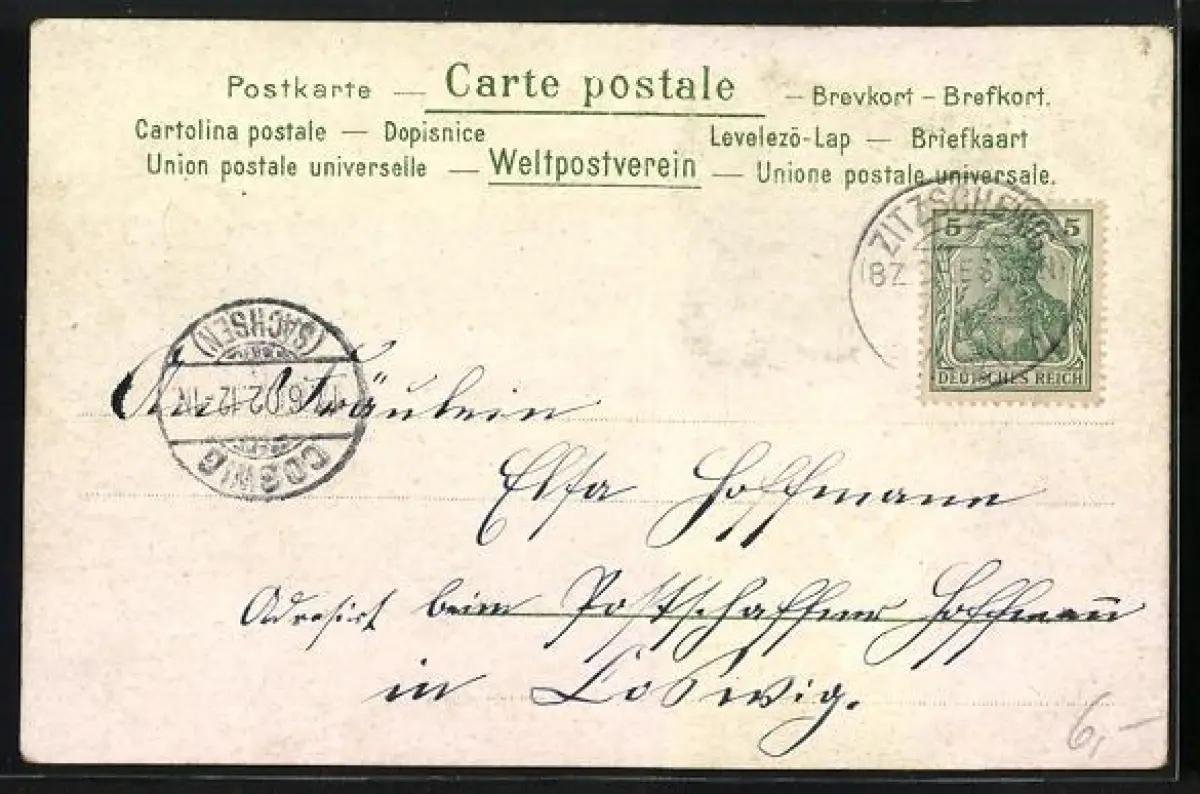 Postkarte — Carte postale — Brevkort – Brefkort.
Cartolina postale — Dopisnice Levelezö-Lap — Briefkaart
Union postale universelle — Weltpostverein — Unione postale universale.
ZITZSCHEWIG
(BZ. DRESDEN)
5 5
DEUTSCHES REICH
(SACHSEN)
6 02 12-1N
COSWIG
An Fräulein
Elsa Hoffmann
Adresirt beim Postschaffner Hoffmann
in Coswig.
6,-